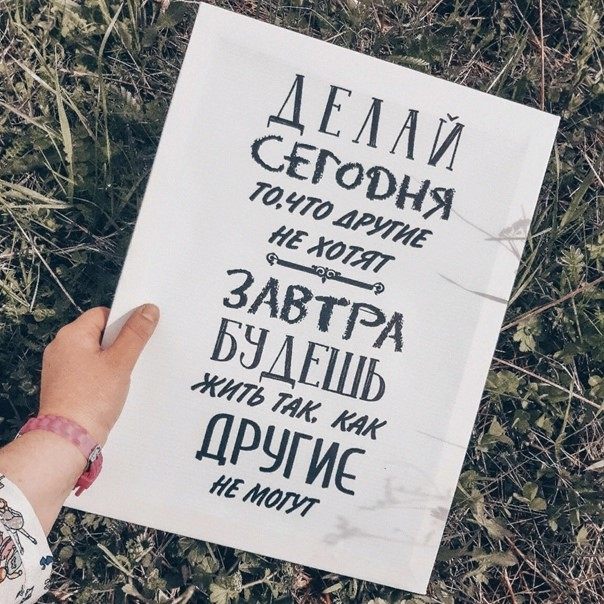 ДЕЛАЙ
СЕГОДНЯ
ТО,ЧТО ДРУГИЕ
НЕ ХОТЯТ
ЗАВТРА
БУДЕШЬ
ЖИТЬ ТАК, КАК
ДРУГИЕ
НЕ МОГУТ